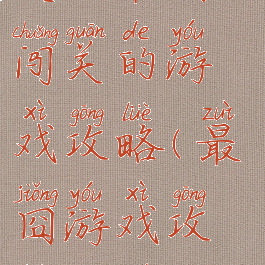 chuǎng guān de yóu
闯关的游
xì gōng lüè zuì
戏攻略(最
jiǒng yóu xì gōng
囧游戏攻